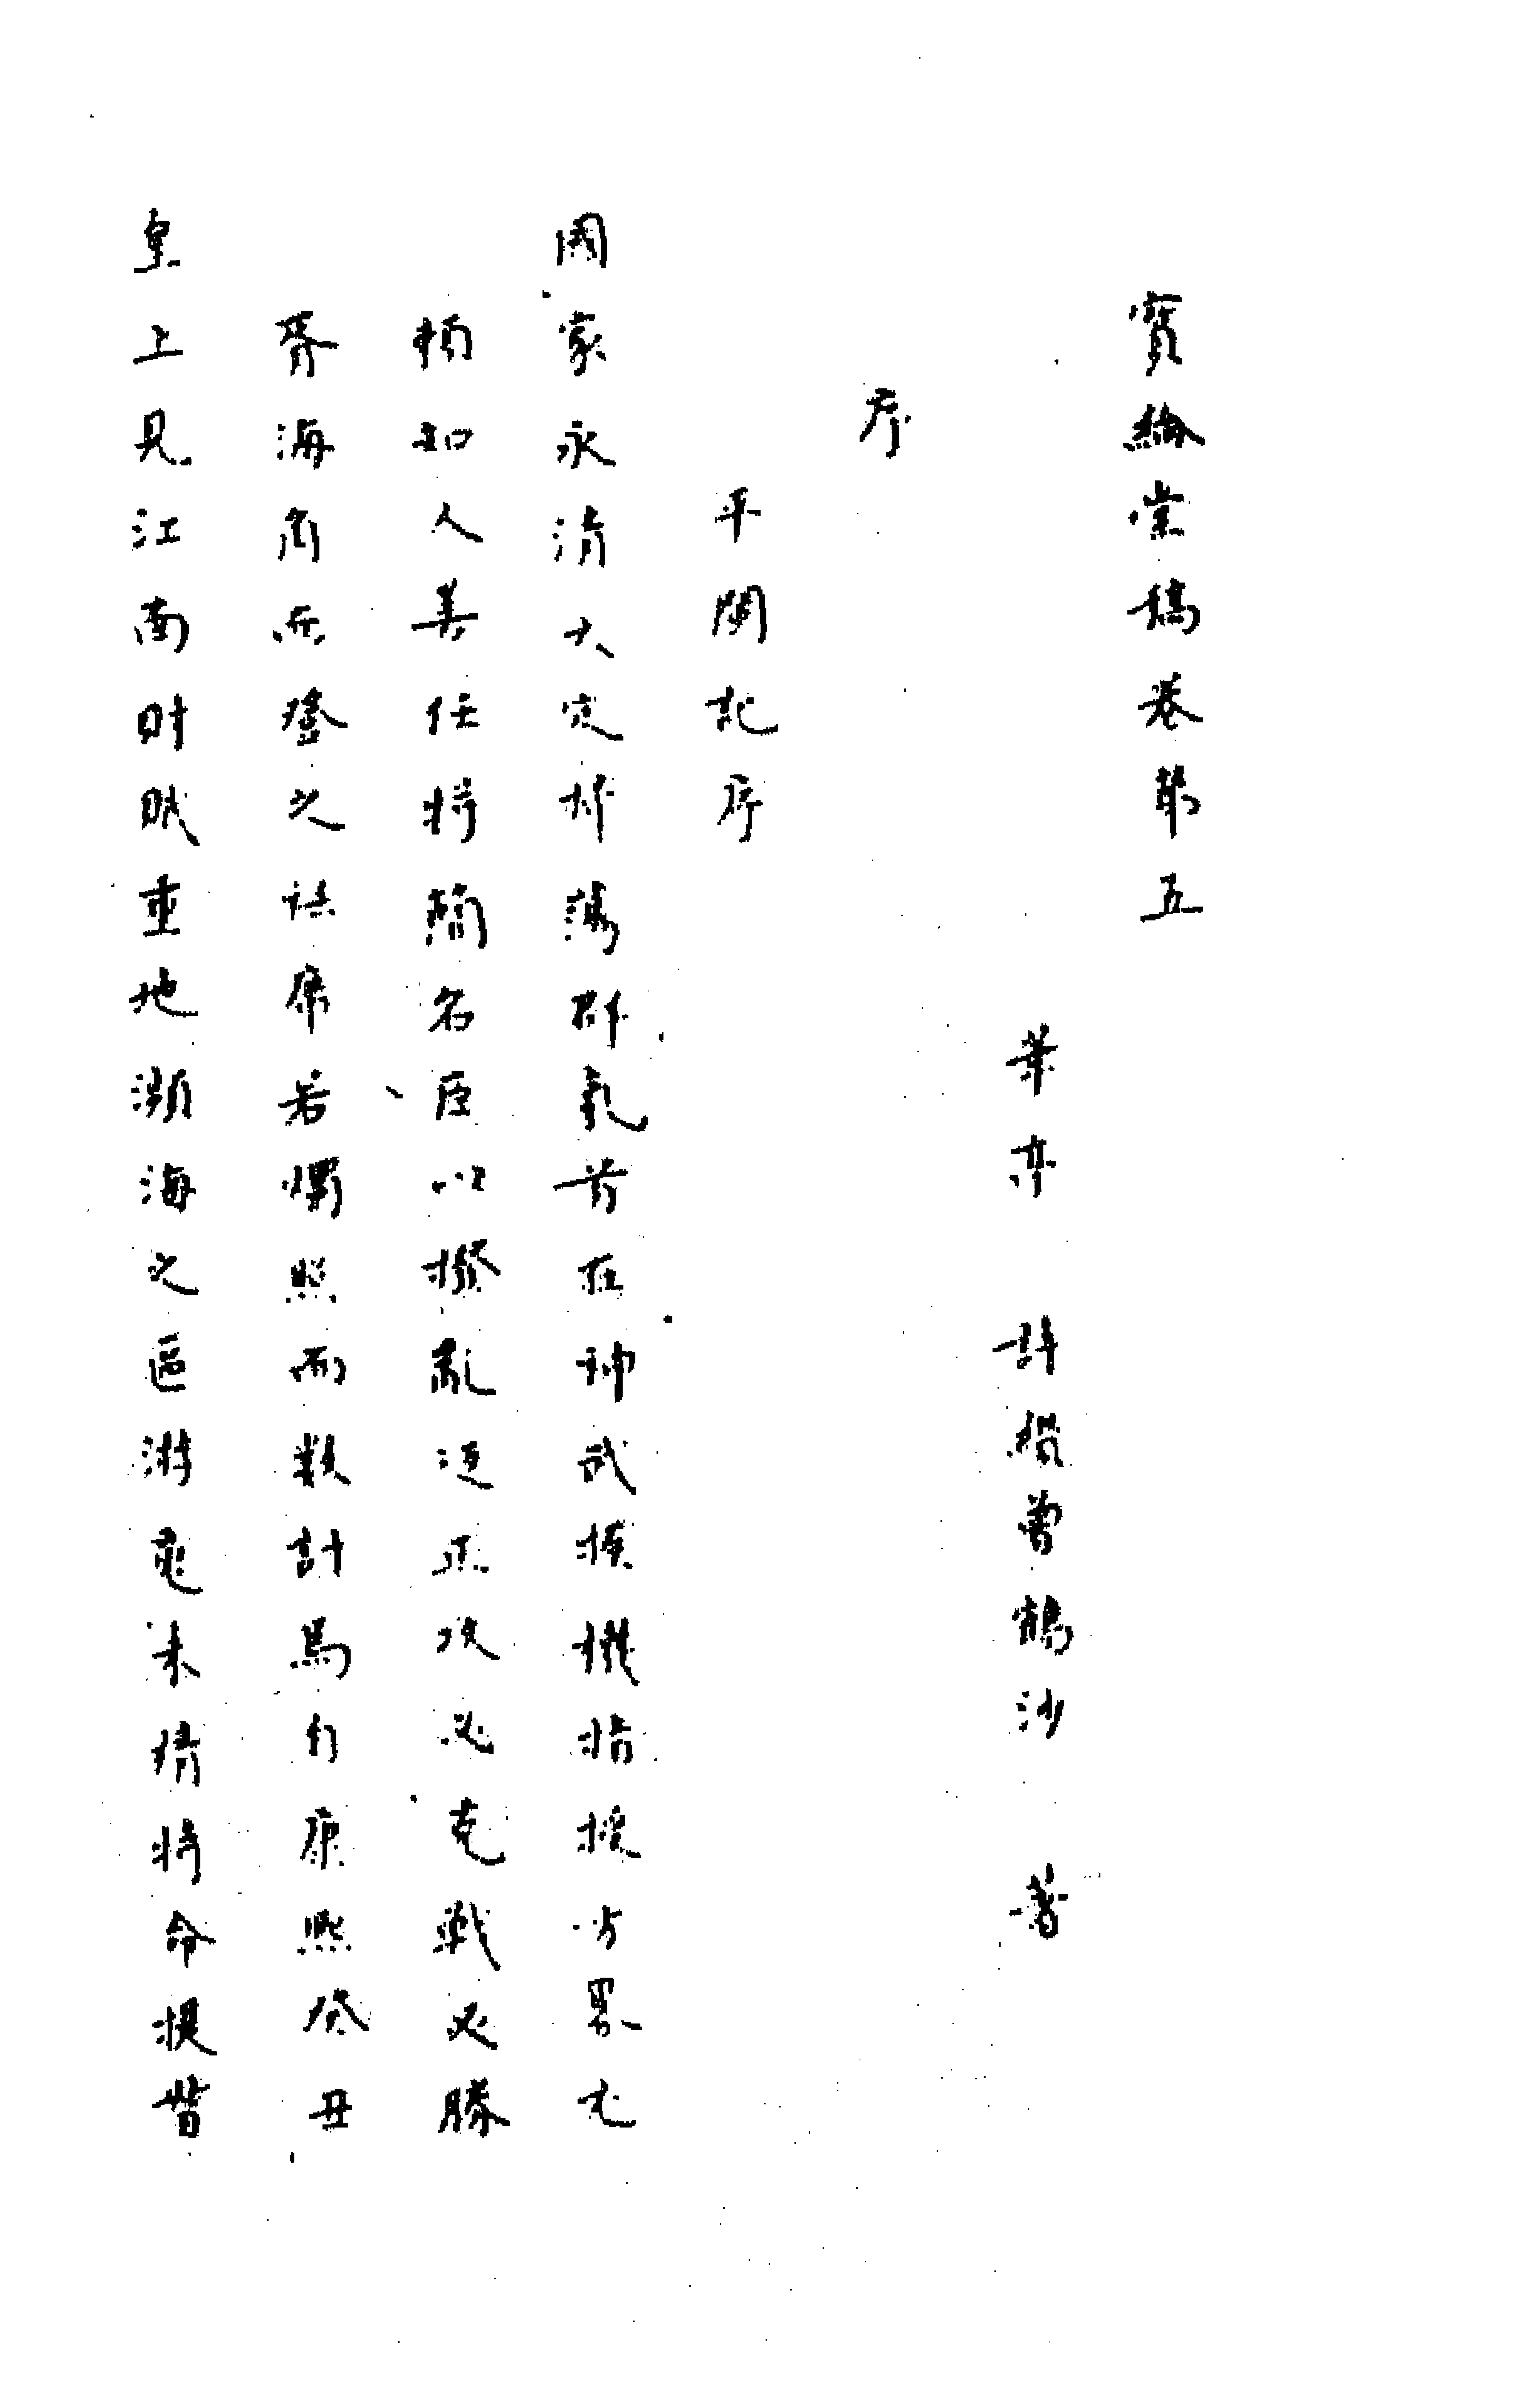 寶綸堂稿卷第五
華亭 許纘曾鶴沙 著
序
平閩記序
國家永清大定掃蕩群氛首在神武揆機指授方畧尤
頼知人善任將簡名臣以撥亂返正攻必克戰必勝
胥海甸而登之袵席若燭照而數計焉行康熙癸丑
皇上見江南財賦重地瀕海之區游氛未靖將命提督